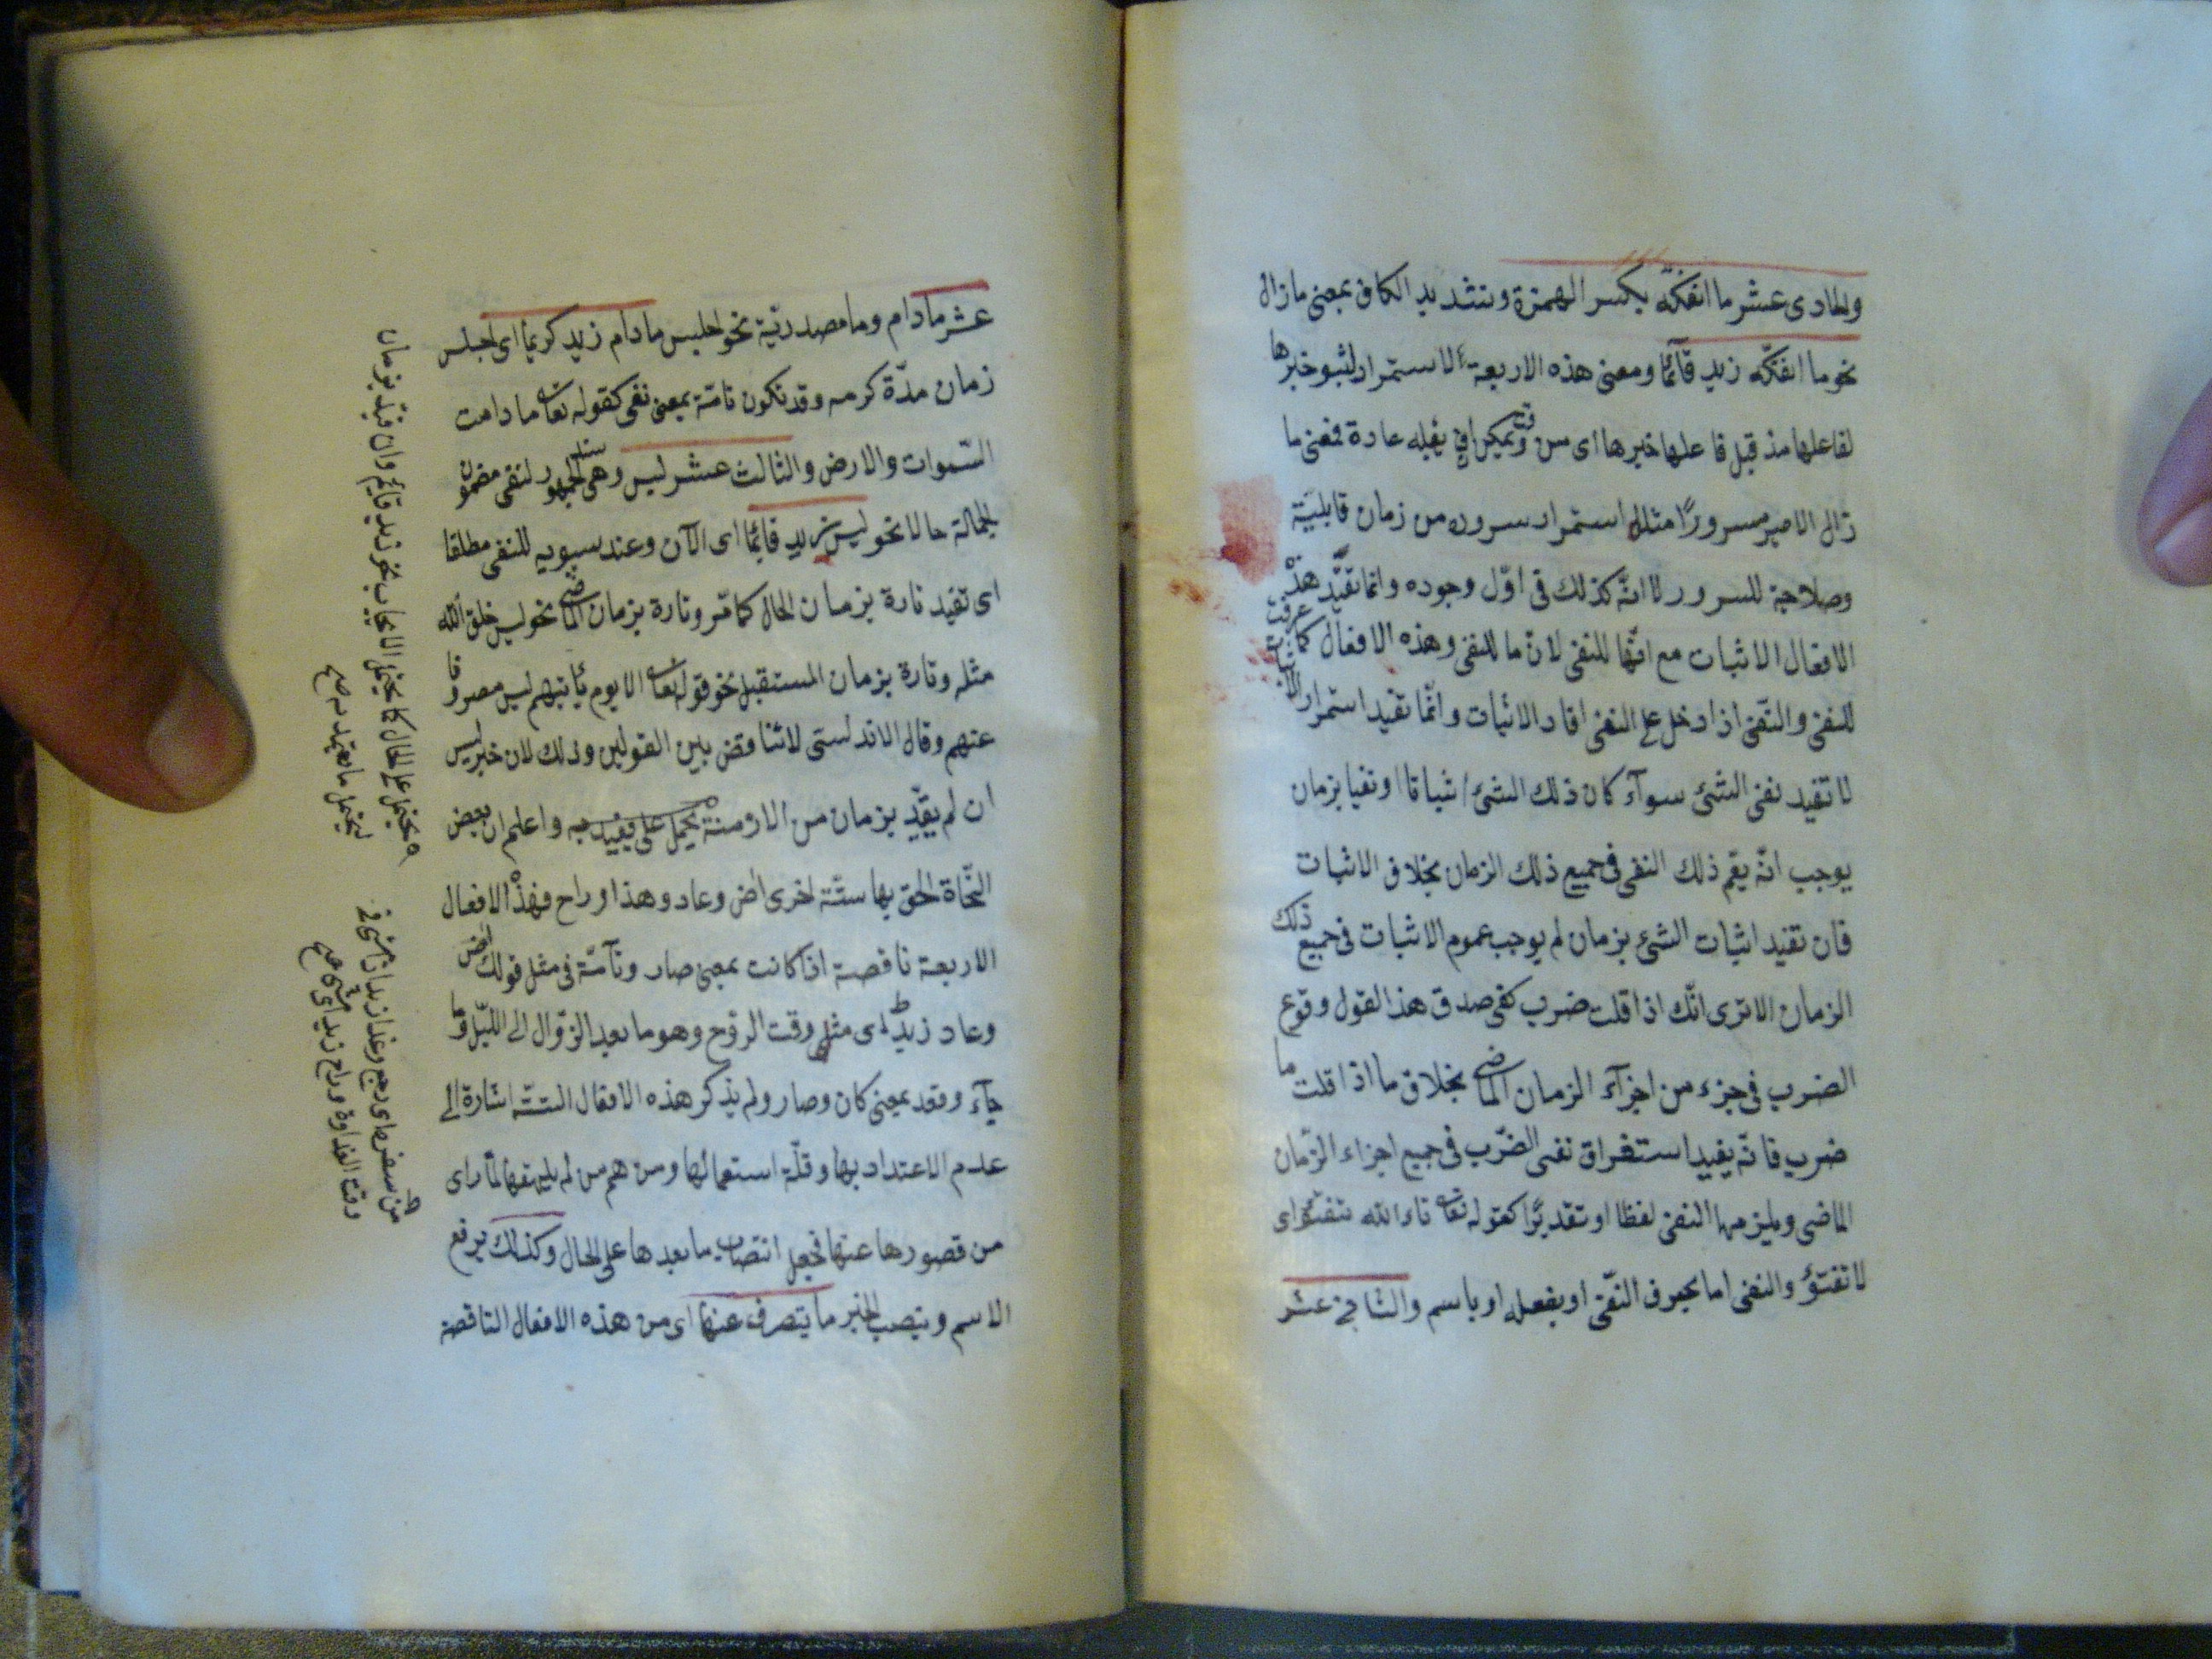 والحادى عشر ما انفكّ بكسر الهمزة وبتشديد الكاف بمعنى ما زال
نحو ما انفكّ زيد قآئما ومعنى هذه الاربعة الاستمرار لثبو خبرها
لفاعلها مذ قبل فاعلها خبرها اى من وقت يمكن ان يقبله عادة فمعنى ما
زال الامير مسرورًا مثلا استمرار سروره من زمان قابليّة
وصلاحية للسرور لا انّه كذلك فى اوّل وجوده وانما تقيّد هذه
الافعال الاثبات مع انّها للنفى لانّ ما للنفى وهذه الافعال كما عرفت
للنفى والنّفى اذا دخل على النفى افاد الاثبات وانّما تفيد استمرار الاثبات
لا تقيد نفى الشئ سوآء كان ذلك الشئ اثباتا او نفيا بزمان
يوجب انّه يعّم ذلك النفى فى جميع ذلك الزمان بخلاف الاثبات
فان تقيد اثبات الشئ بزمان لم يوجب عموم الاثبات فى جميع ذلك
الزمان الا ترى انّك اذا قلت ضرب كفى صدق هذا القول وقوع
الضرب فى جزء من اجزآء الزمان الماضى بخلاف ما اذا قلت ما
ضرب فانّه يفيد استغراق نفى الضّرب فى جميع اجزاء الزّمان
الماضى ويلزمها النفى لفظا او تقديرًا كقوله تعا تاء الله تفتؤ اى
لا تفتؤ والنفى اما بحرف النّفى او بفعله او باسم والثانى عشر
عشر مادام وما مصدريّة نحو اجلس مادام زيد كريما اى اجلس
زمان مدّة كرمه وقد تكون تامّة بمعنى نفى كقوله تعا ما دامت
السّموات والارض والثالث عشر ليس وهى عند الجمهور لنفى مضمون
الجمالة حالا نحو ليس زيد قائما اى الآن وعند سيبويه للنفى مطلقا
اى تفيد تارة بزمان الحال كما مّر وتارة بزمان الماضى نحو ليس خلق الله
مثله وتارة بزمان المستقبل نحو قوله تعا الا يوم يأتيهم ليس مصروفا
عنهم وقال الاندلسى لا تناقض بين القولين وذلك لان خبر ليس
ان لم يقيّد بزمان من الازمنة يحمل على يقيد به واعلم ان بعض
النّحاة الحق بها ستّة اخرى اض وعاد وغدا وراح فهذه الافعال
الاربعة ناقصة اذا كانت بمعنى صار وتآمّة فى مثل قولك اض
وعاد زيد اى مثله وقت الروح وهو ما بعد الزوال الى الليل وما
جآء وقعد بمعنى كان وصار ولم يذكر هذه الافعال الستّة اشارة الى
عدم الاعتداد بها وقلّة استعمالها ومن هم من لم يلحقها لما راى
من قصورها عنها فجعل انتصاب ما بعدها على الحال وكذلك يرفع
الاسم وينصب الخبر ما يتصرف عنها اى من هذه الافعال الناقصة
يحتمل على الحال كما يحتمل الايجاب نحو زيد قائم وان قيد بزمان
من سفره اى رجع وغدا زيد اذا مشى فى
وقت الغداوة وراح زيد اى مشى صح